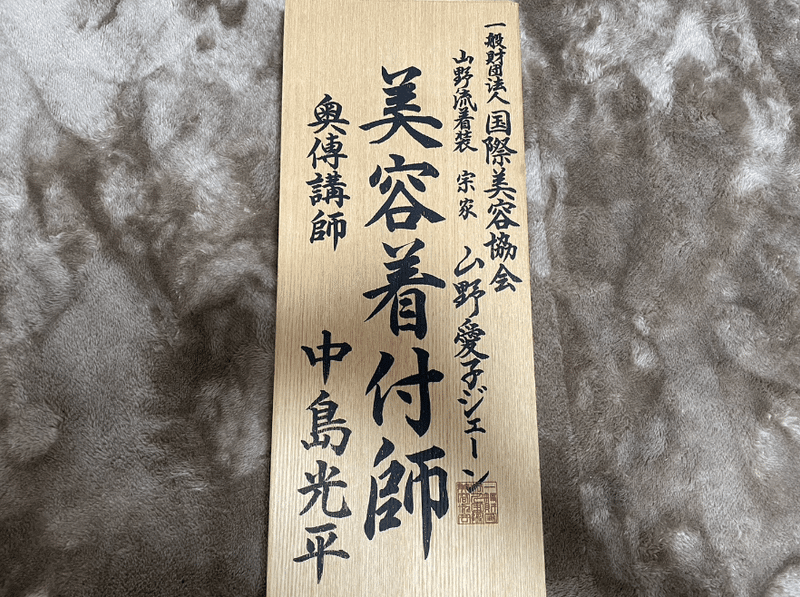 一般財団法人 国際美容協会
山野流着装 宗家 山野愛子ジェーン
美容着付師
奥傳講師 中島光平